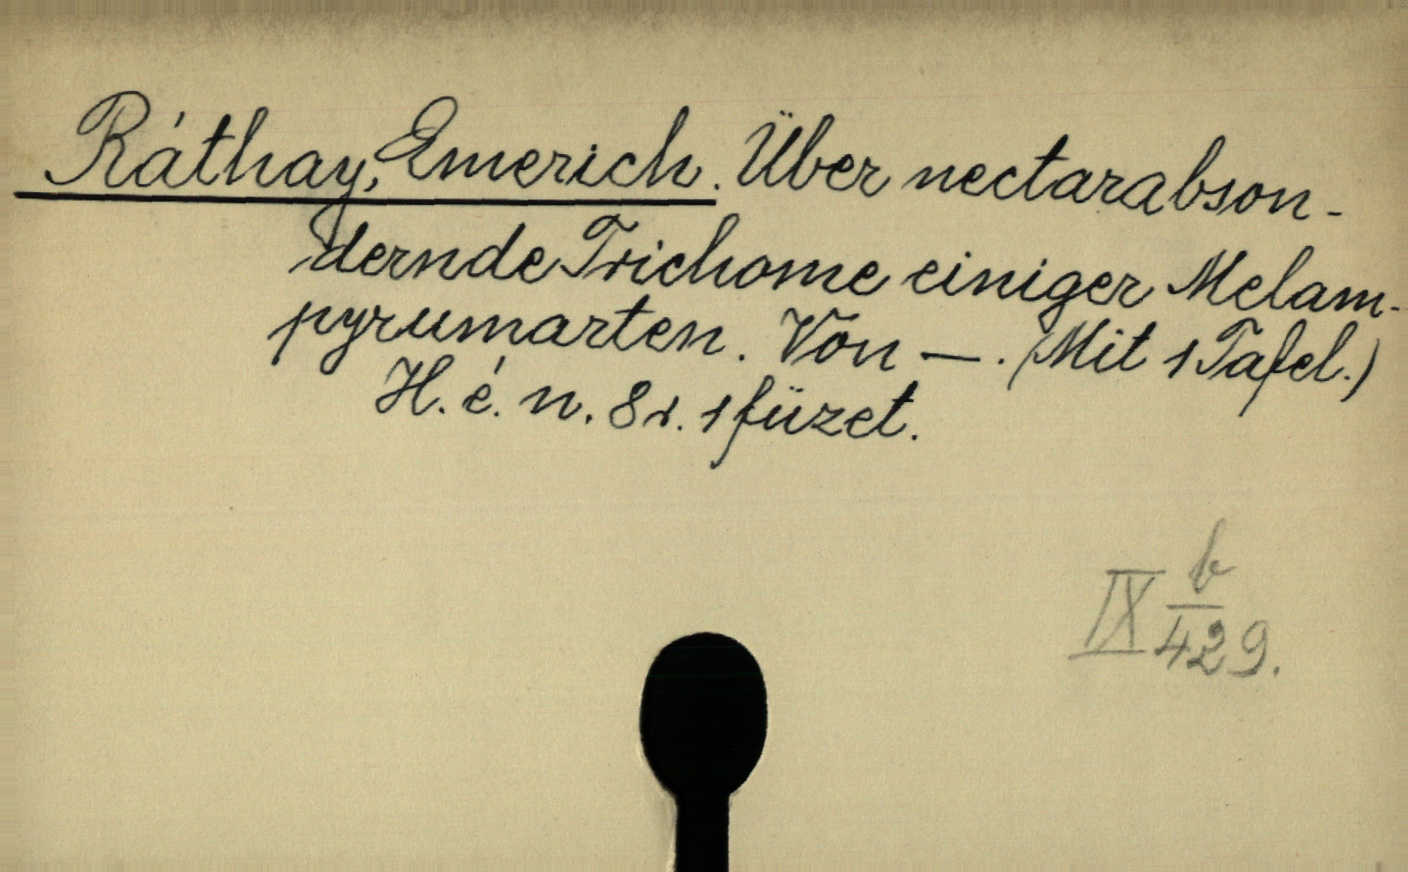 Ráthay, Emerich. Über nectarabson-
dernde Trichome einiger Melam-
pyrumarten. Von —. (Mit 1 Tafel.)
H. é. n. 8r. 1 füzet.
IX b/429.